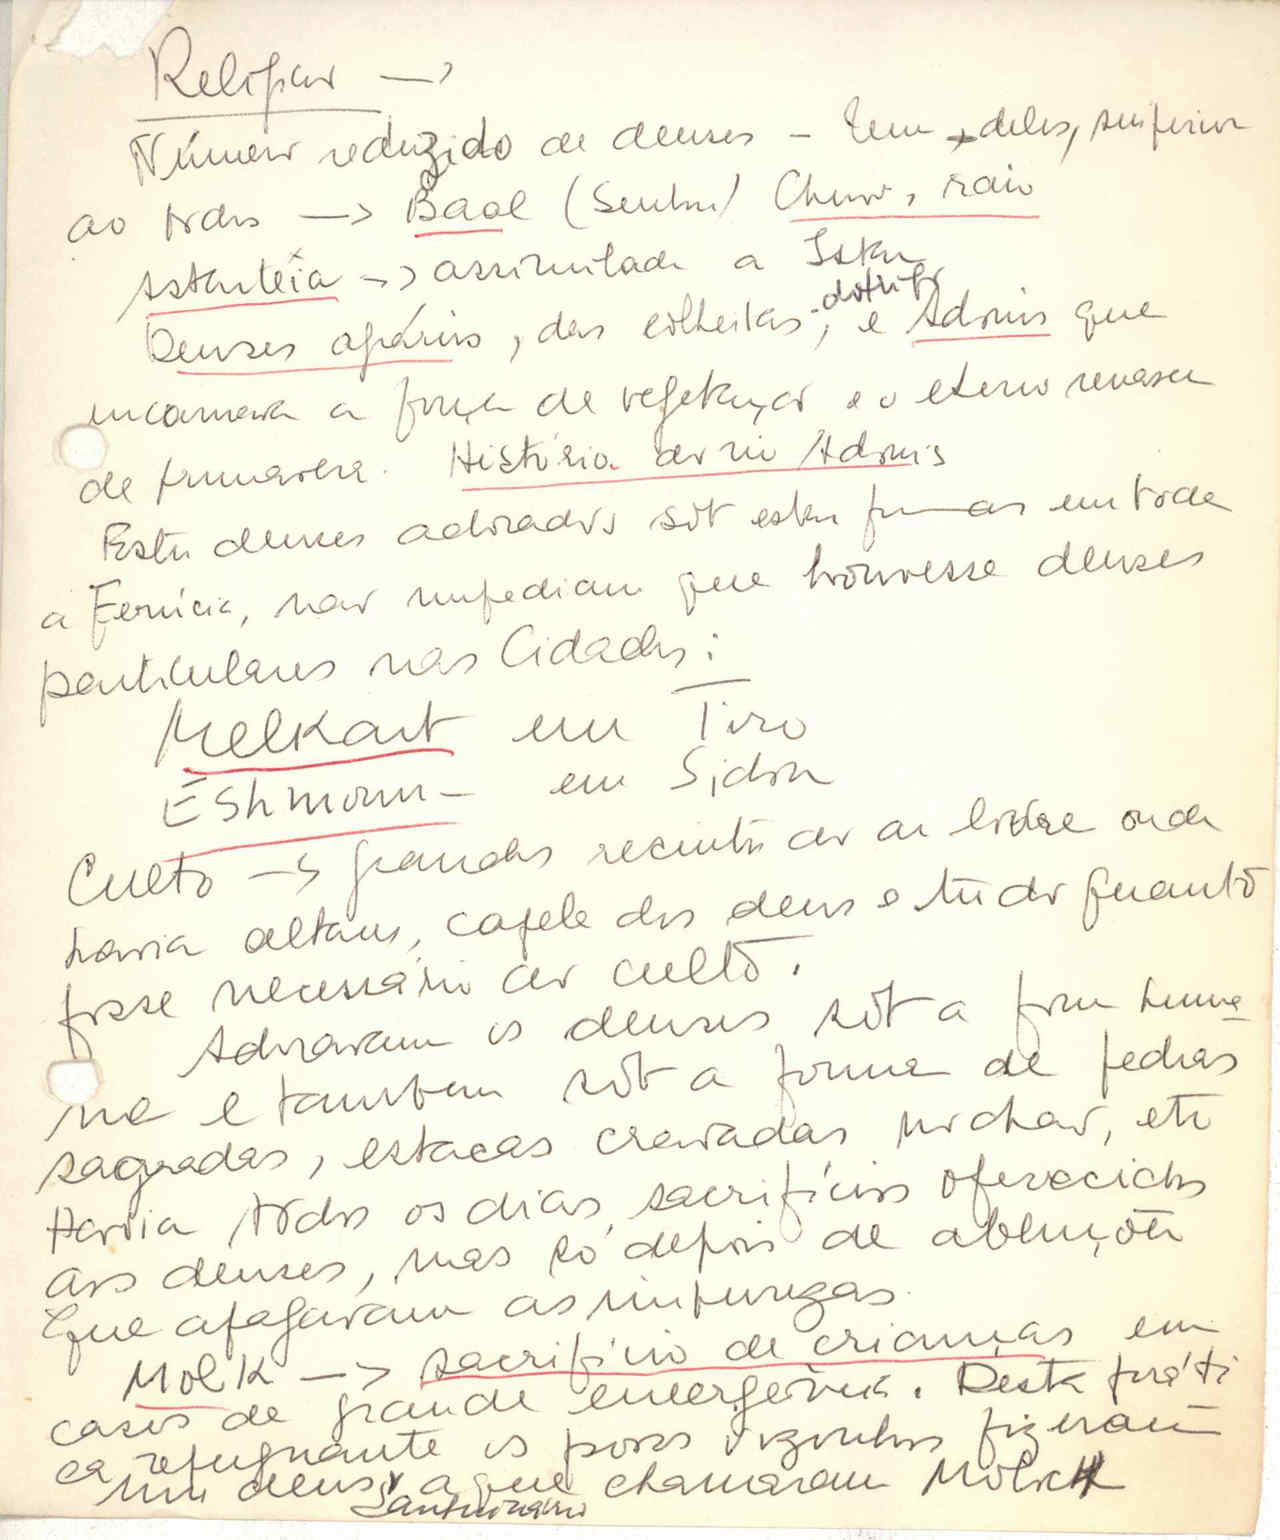 Religião →
Número reduzido de deuses – Um deles, superior
ao todos → Baal (Senhor) Chuva, raio
Astartéia → assimilada a Istar
Deuses agrários, das colheitas, e Adonis que
do trigo
incarnava a força de vegetação e o eterno renascer
de primavera. História do rio Adonis
Estes deuses adorados sôb estas formas em toda
a Fenícia, não impediam que houvesse deuses
particulares nas Cidades:
Melkart em Tiro
Eshmoun – em Sidon
Culto → grandes recintos ao ar livre onde
havia altares, capela dos deus e tudo quanto
fosse necessário ao culto.
Adoravam os deuses sôb a forma huma
na e tambem sôb a forma de pedras
sagradas, estacas cravadas no chão, etc
Havia todos os dias, sacrifícios oferecidos
aos deuses, mas só depois de abluções
que apagavam as impurezas.
Molk → sacrifício de crianças em
casos de grande emergência. Desta práti
ca repugnante os povos vizinhos fizeram
um deus a que chamaram Moloch
Sanguinário